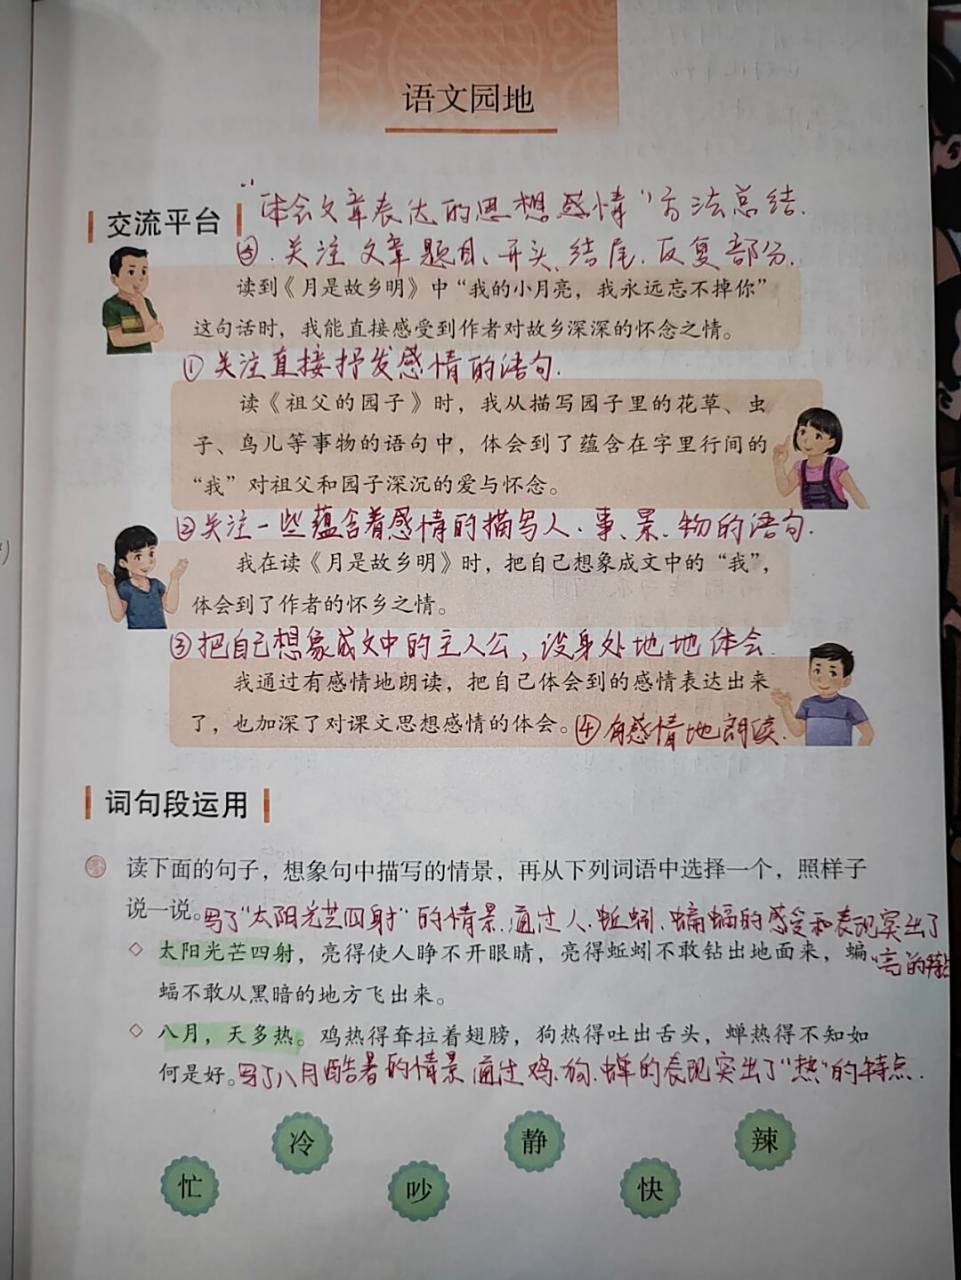 语文园地
交流平台
“体会文章表达的思想感情”方法总结.
⑤.关注文章题目、开头、结尾.反复部分.
读到《月是故乡明》中“我的小月亮，我永远忘不掉你”
这句话时，我能直接感受到作者对故乡深深的怀念之情。
①关注直接抒发感情的语句.
读《祖父的园子》时，我从描写园子里的花草、虫
子、鸟儿等事物的语句中，体会到了蕴含在字里行间的
“我”对祖父和园子深沉的爱与怀念。
②关注一些蕴含着感情的描写人.事、景.物的语句.
我在读《月是故乡明》时，把自己想象成文中的“我”，
体会到了作者的怀乡之情。
③把自己想象成文中的主人公，设身处地地体会.
我通过有感情地朗读，把自己体会到的感情表达出来
了，也加深了对课文思想感情的体会。④有感情地朗读.
词句段运用
读下面的句子，想象句中描写的情景，再从下列词语中选择一个，照样子
说一说。写了“太阳光芒四射”的情景.通过人.蚯蚓.蝙蝠的感受和表现突出了
◇ 太阳光芒四射，亮得使人睁不开眼睛，亮得蚯蚓不敢钻出地面来，蝙
“亮”的特点
蝠不敢从黑暗的地方飞出来。
◇ 八月，天多热。鸡热得耷拉着翅膀，狗热得吐出舌头，蝉热得不知如
何是好。写了八月酷暑的情景通过鸡.狗.蝉的表现突出了“热”的特点.
冷 静 辣
忙 吵 快